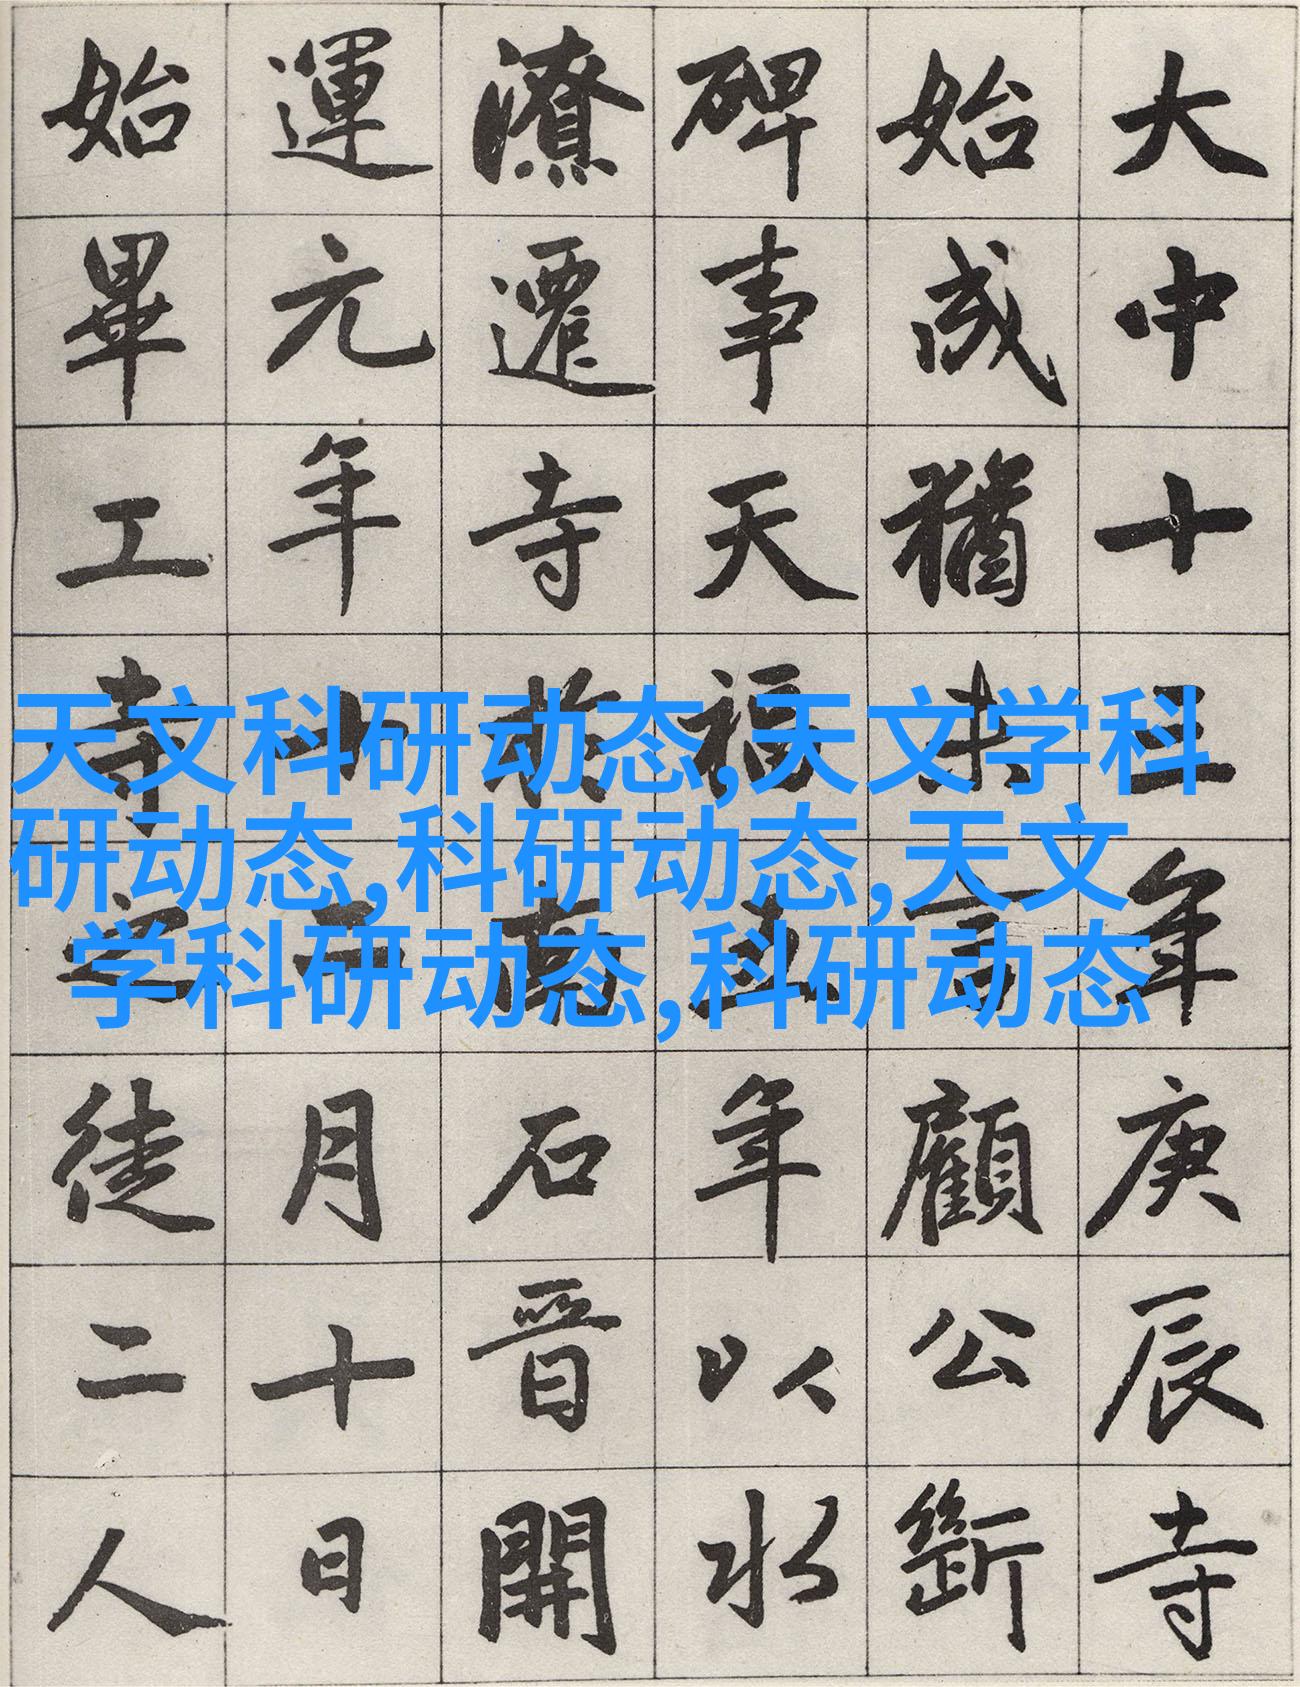 大中十三年庚辰寺
始成猶未言顧公斷
碑事天福五年以水
潦遷寺於高石晉開
運元年 月十日
始畢工寺 徒二人
天文科研动态,天文学科
研动态,科研动态,天文
学科研动态,科研动态